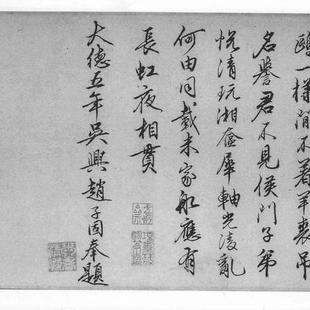 鷗一樣閒不着羊裘吊
名譽君不見侯門子弟
悦清玩湘奩犀軸光凌亂
何由同載米家船應有
長虹夜相貫
大德五年吳興趙子固奉題